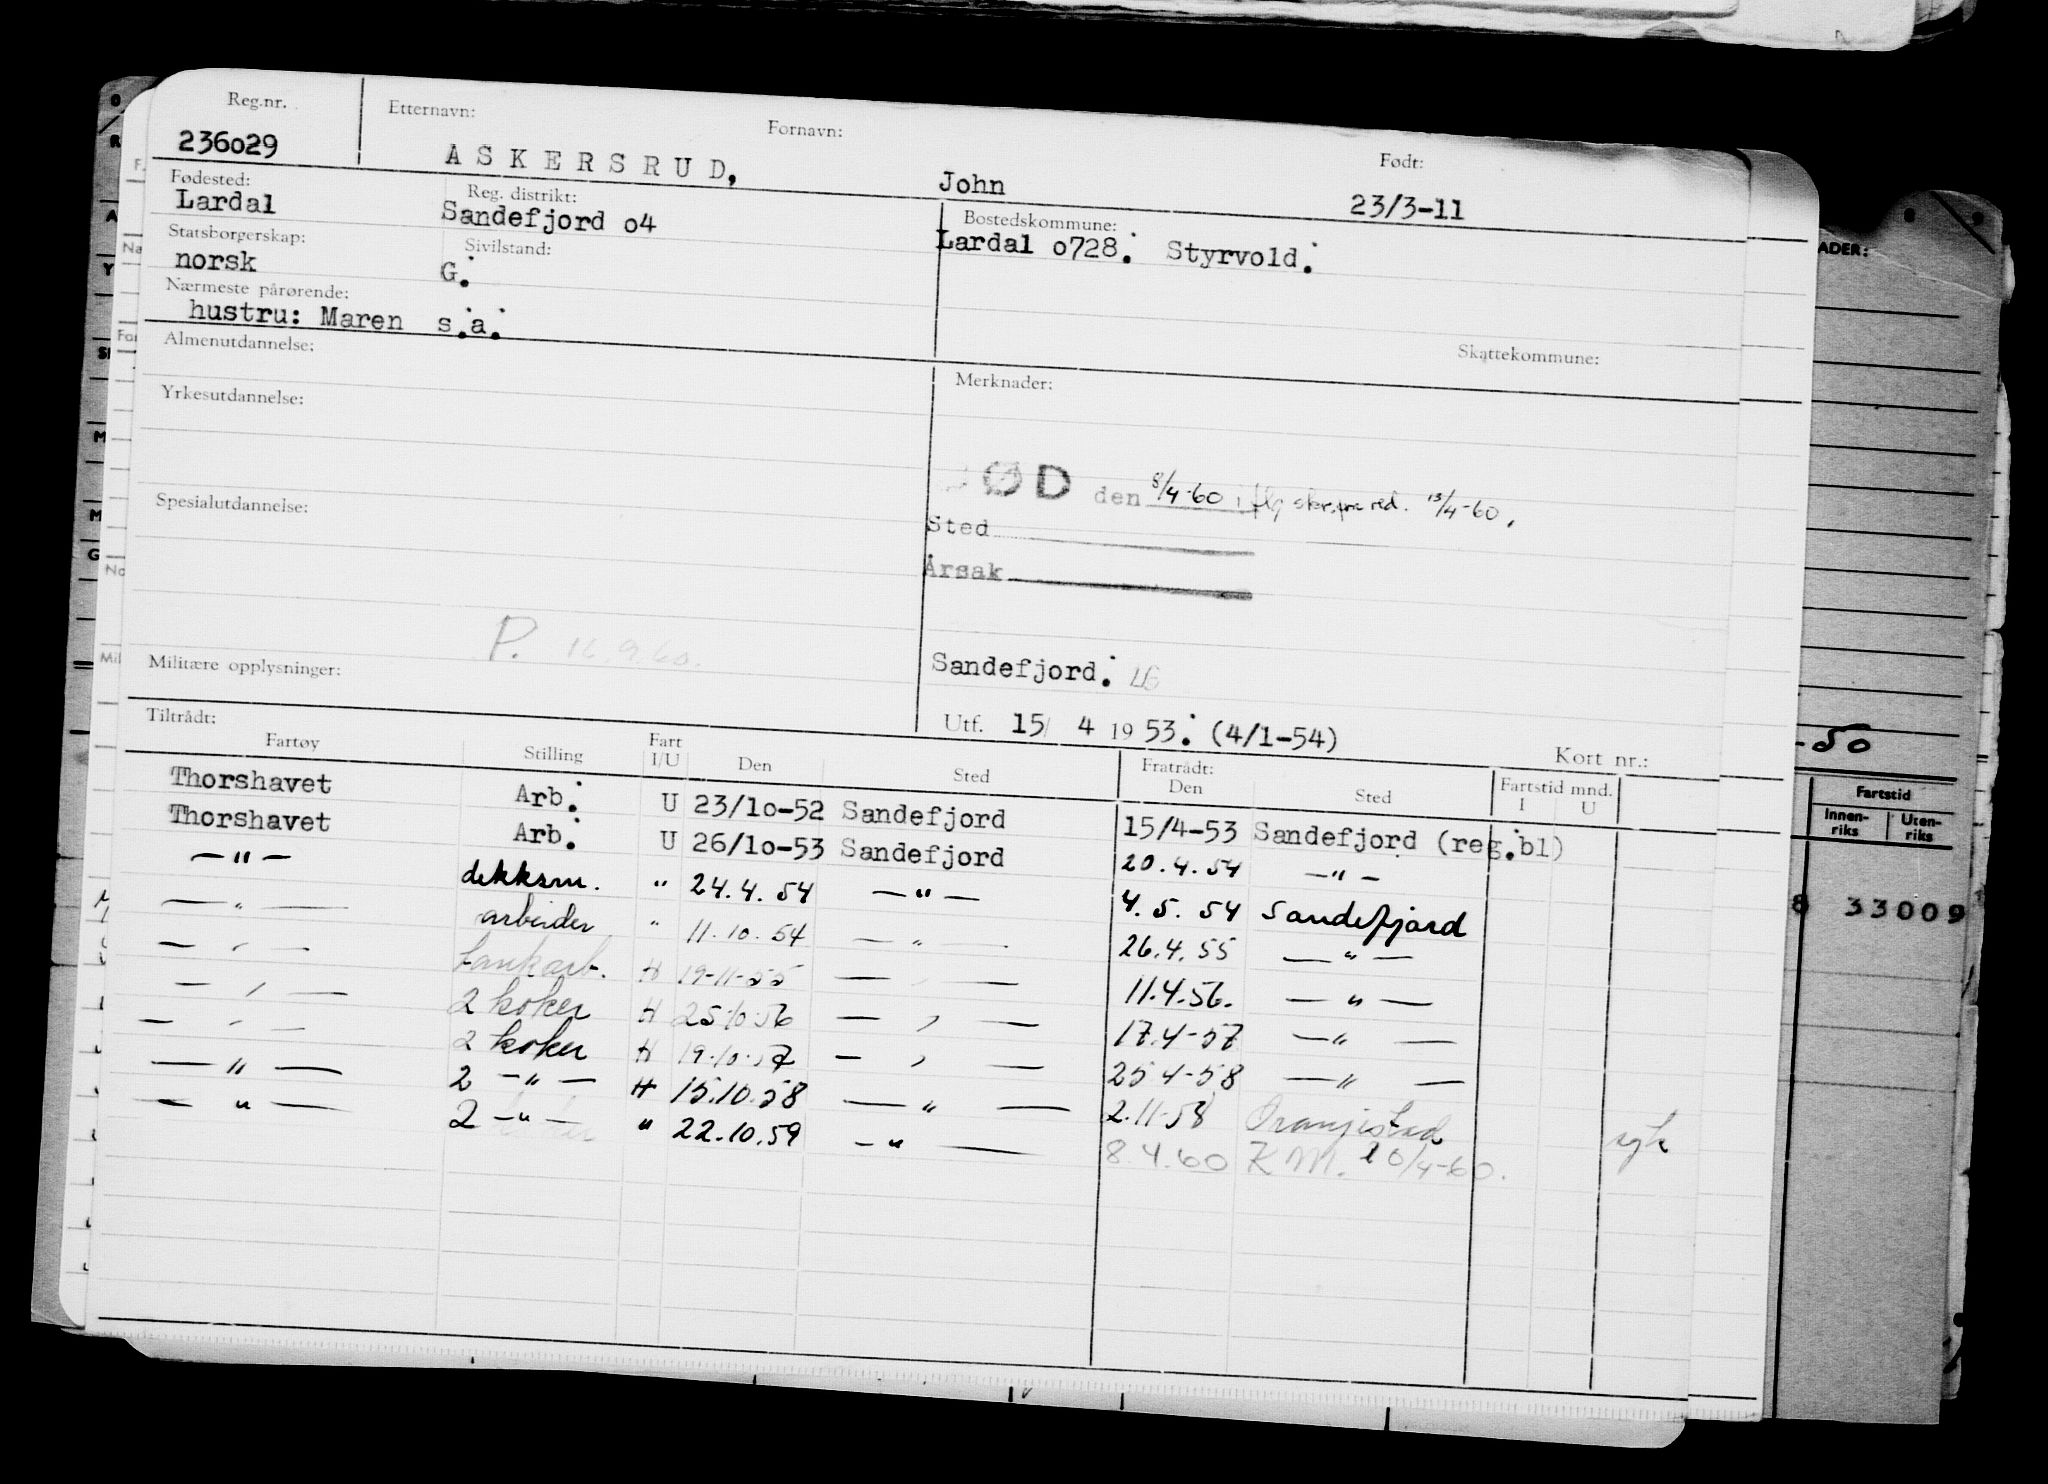 Reg.nr. Etternavn: Fornavn: Født:
236029 ASKERSRUD, John 23/3-11
Fødested: Reg. distrikt: Bostedskommune:
Lardal Sandefjord o4 Lardal o728. Styrvold.
Statsborgerskap: Sivilstand:
norsk G.
Nærmeste pårørende:
hustru: Maren s.a.
Skattekommune:
Almenutdannelse: Merknader:
Yrkesutdannelse:
ØD den 8/4-60 iflg skr. fra red. 13/4-60.
Spesialutdannelse: Sted
Årsak
P. 16.9.60.
Militære opplysninger: Sandefjord.
Utf. 15/ 4 1953. (4/1-54)
Kort nr.:
Tiltrådt: Fratrådt:
Fartøy Stilling Fart I/U Den Sted Den Sted Fartstid mnd. I U
Thorshavet Arb. U 23/1o-52 Sandefjord 15/4-53 Sandefjord (reg.bl)
Thorshavet Arb. U 26/1o-53 Sandefjord 20.4.54 —"—
—"— dekksm. " 24.4.54 —"— 4.5.54 Sandefjord
—"— arbeider " 11.10.54 —"— 26.4.55 —"—
—"— tankarb. H 19-11-55 —"— 11.4.56. —"—
—"— 2 koker H 25.10.56 —"— 17.4-57 —"—
—"— 2 koker H 19.10.57 —"— 25.4-58 —"—
—"— 2 —"— H 15.10.58 —"— 2.11-58 Oranjestad syk
—"— 2 —"— " 22.10.59 —"— 8.4.60 K.M. 10/4-60.
ADER:
-50
Fartstid
Innen-riks Uten-riks
8 33009